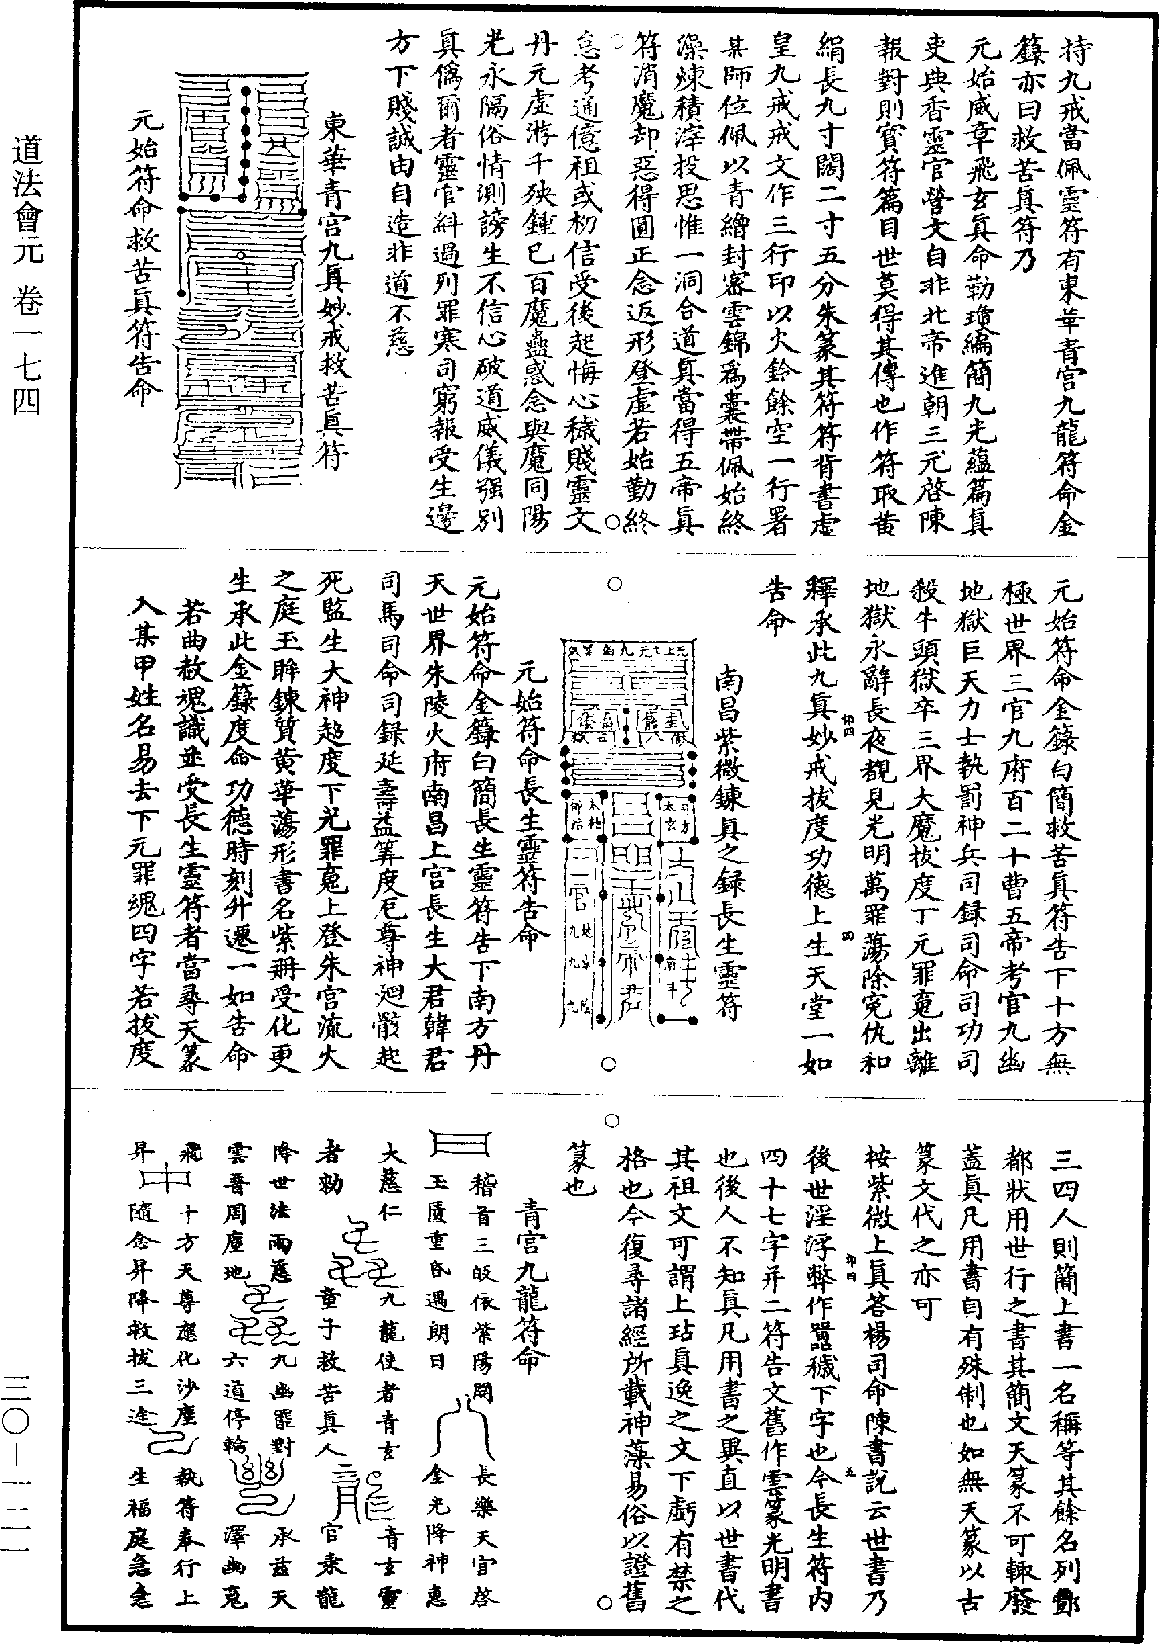 道法會元 卷一七四
持九戒當佩靈符有東華青宮九龍符命金
籙亦曰救苦真符乃
元始威章飛玄真命勒瓊編簡九光蘊篇真
吏典香靈官營文自非北帝進朝三元啓陳
報對則寶符篇目世莫得其傳也作符取黃
絹長九寸闊二寸五分朱篆其符符背書虛
皇九戒戒文作三行印以火鈴餘空一行署
某師位佩以青繒封審雲錦爲囊帶佩始終
藻煉積滓投思惟一洞合道真當得五帝真
符消魔却惡得圓正念返形登虛若始勤終
怠考通億祖或初信受後起悔心穢賤靈文
丹元虛游千殃鍾已百魔蠱惑念與魔同陽
光永隔俗情測謗生不信心破道威儀强別
真僞爾者靈官糾過列罪寒司窮報受生邊
方下賤誠由自造非道不慈
東華青宮九真妙戒救苦真符
元始符命救苦真符告命
元始符命金籙白簡救苦真符告下十方無
極世界三官九府百二十曹五帝考官九幽
地獄巨天力士執罰神兵司録司命司功司
殺牛頭獄卒三界大魔拔度丁元罪䰟出離
地獄永辭長夜覩見光明萬罪蕩除寃仇和
釋承此九真妙戒拔度功德上生天堂一如
告命
南昌紫微鍊真之録長生靈符
元始符命長生靈符告命
元始符命金籙白簡長生靈符告下南方丹
天世界朱陵火府南昌上宮長生大君韓君
司馬司命司録延壽益筭度厄尊神廻骸起
死監生大神超度下兆罪䰟上登朱宮流火
之庭玉眸鍊質黃華蕩形書名紫冊受化更
生承此金籙度命功德時刻升遷一如告命
若曲赦魂識並受長生靈符者當尋天篆
入某甲姓名易去下元罪魂四字若拔度
三四人則簡上書一名稱等其餘名列酆
都狀用世行之書其簡文天篆不可輙廢
蓋真凡用書自有殊制也如無天篆以古
篆文代之亦可
按紫微上真答楊司命陳書説云世書乃
後世淫浮弊作囂穢下字也今長生符内
四十七字并二符告文舊作雲篆光明書
也後人不知真凡用書之異直以世書代
其祖文可謂上玷真逸之文下虧有禁之
格也今復尋諸經所載神藻易俗以證舊
篆也
青宮九龍符命
稽首三皈依紫陽闕 長樂天宮啓
玉匱重昏遇朗日 金光降神惠
大慈仁 九龍使者青玄 青玄靈
者勑 童子救苦真人 官乘龍
降世法雨慈 九幽罪對 承兹天
雲普周塵地 六道停輪 澤幽䰟
飛 十方天尊應化沙塵 執符奉行上
昇 隨念昇降救拔三途 生福庭急急
三〇-一二一